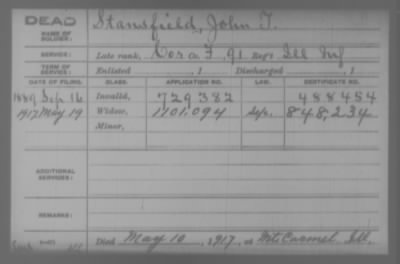 DEAD
NAME OF SOLDIER: Stansfield, John T.
SERVICE: Late rank, Cor Co. F, 91 Reg't Ill Inf
TERM OF SERVICE: Enlisted , 1 Discharged , 1
DATE OF FILING. CLASS. APPLICATION NO. LAW. CERTIFICATE NO.
1889 Sep 16 Invalid, 729382 488454
1917 May 19 Widow, 1101,094 Sep. 848,234
Minor,
ADDITIONAL SERVICES:
REMARKS:
Died May 10, 1917, at Mt. Carmel Ill.